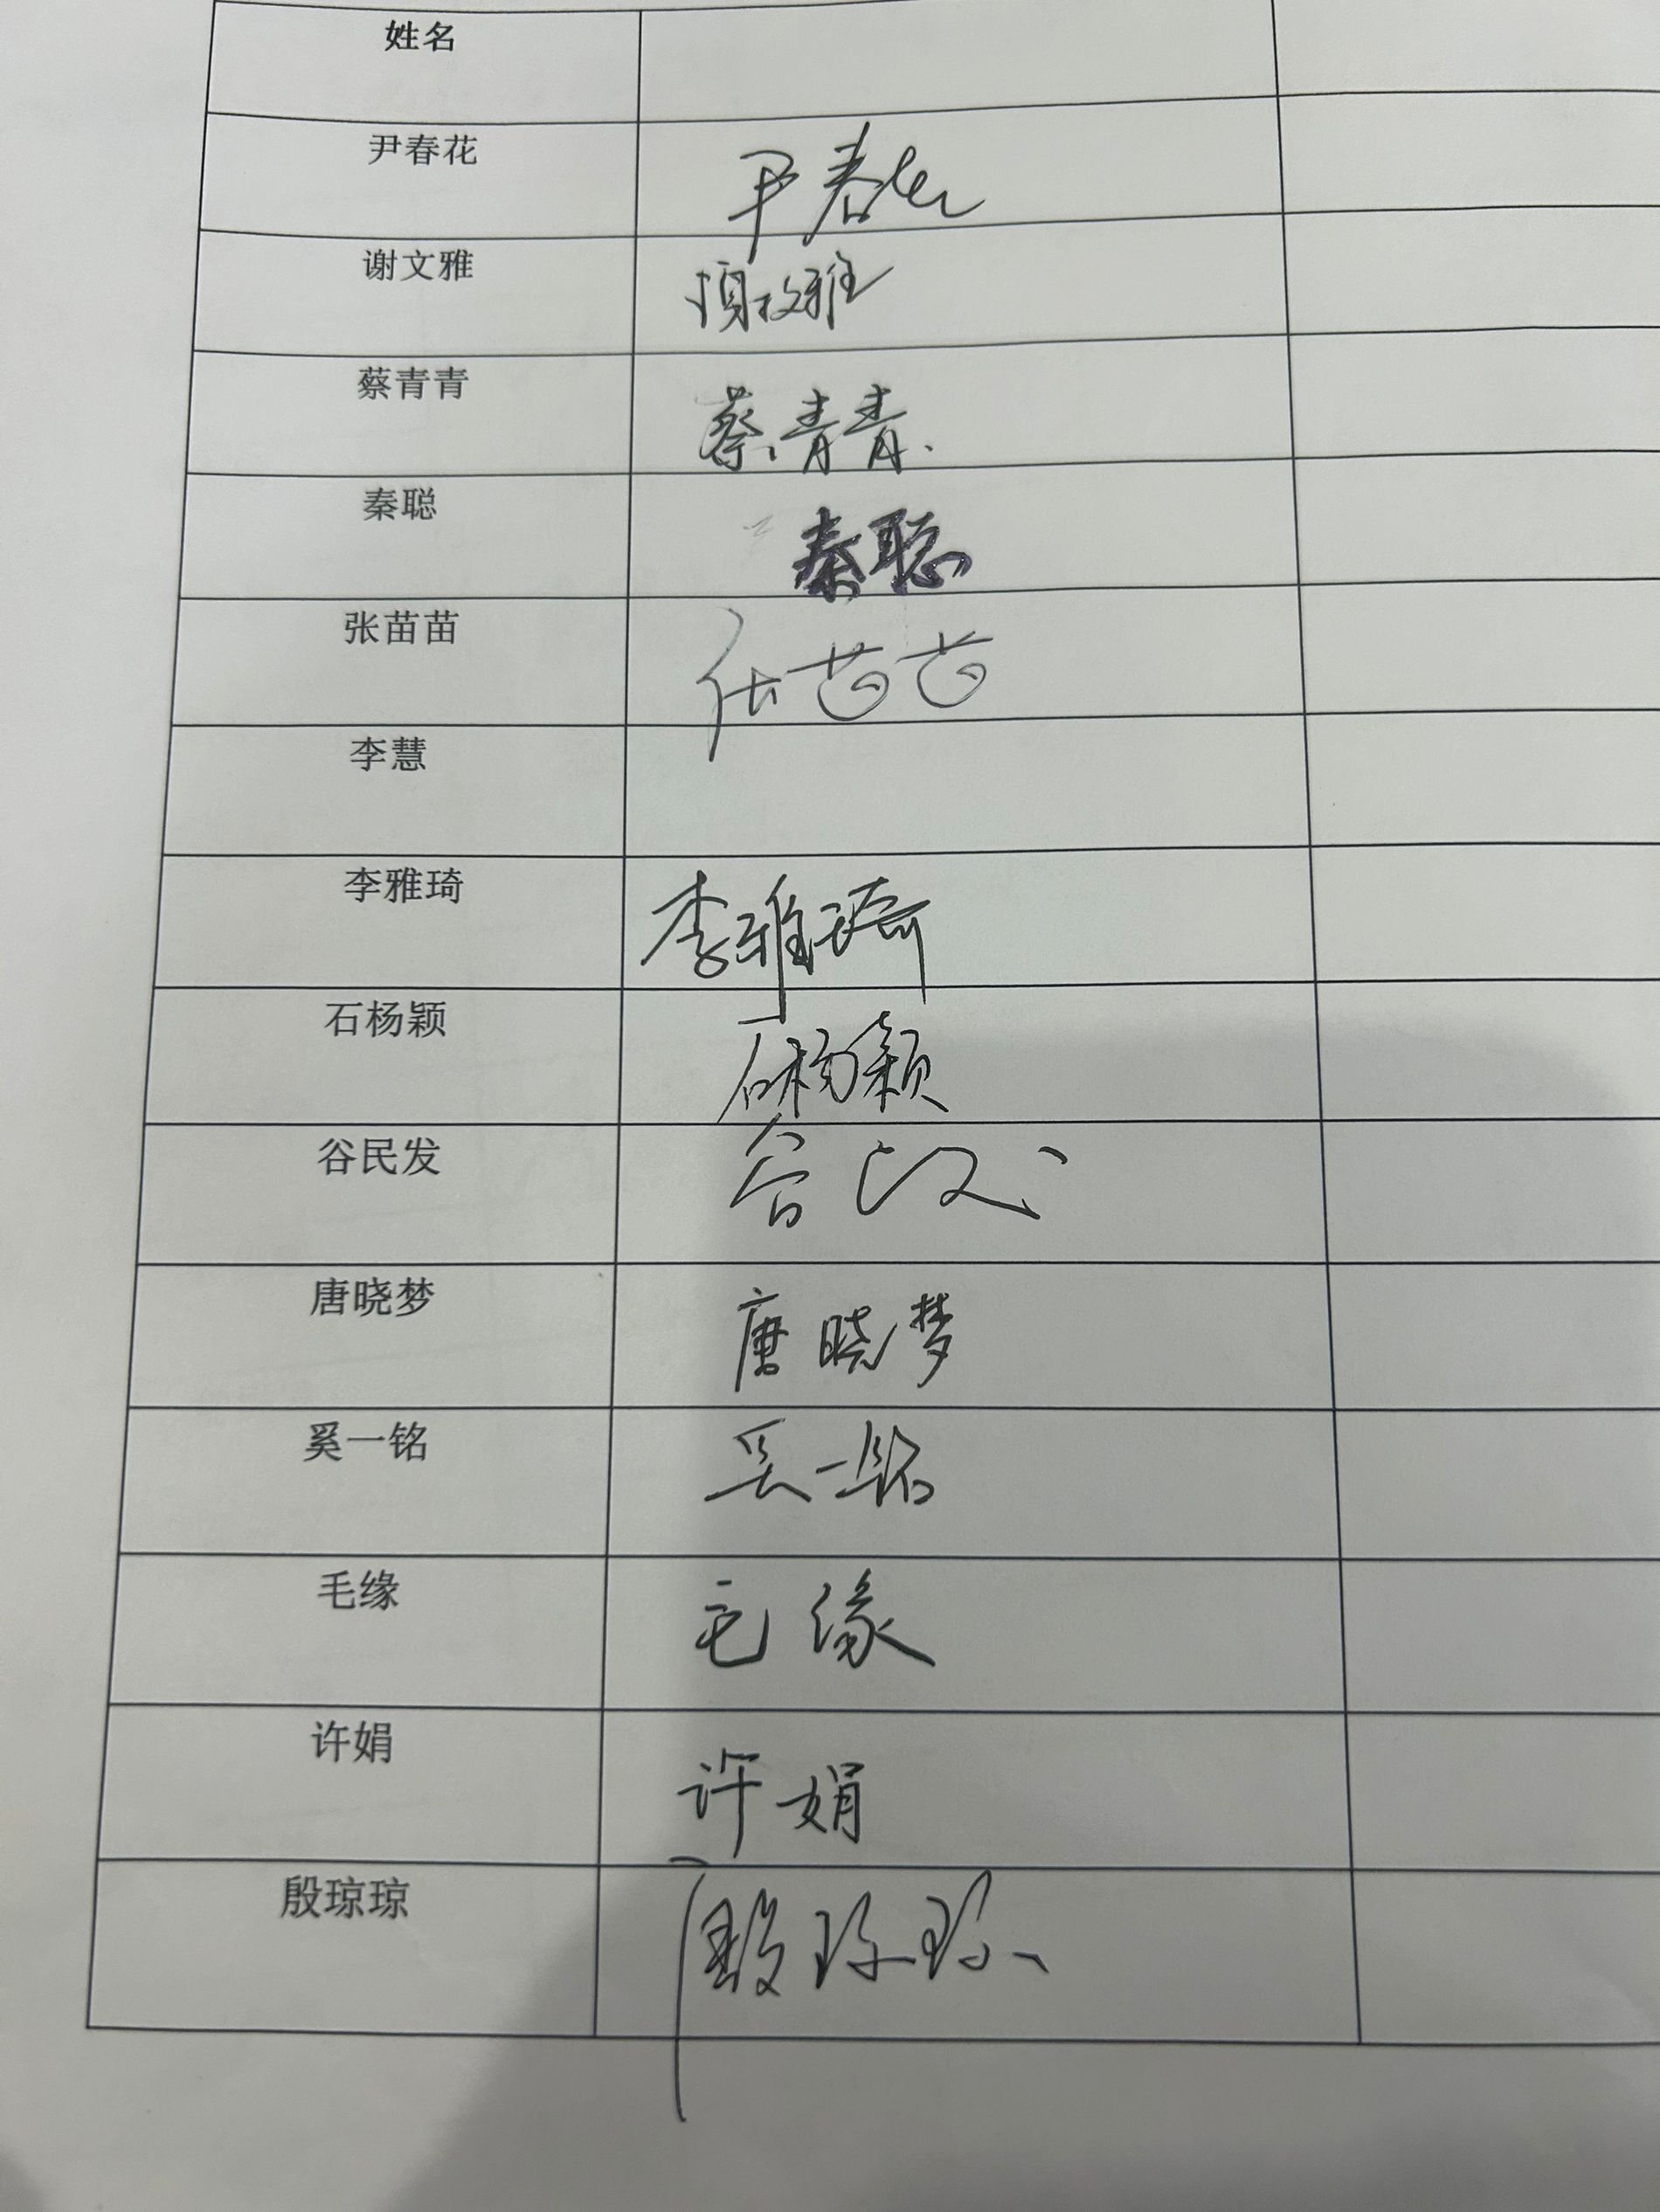 姓名
尹春花 尹春花
谢文雅
蔡青青 蔡青青
秦聪 秦聪
张苗苗 苗苗
李慧
李雅琦 李雅琦
石杨颖 石杨颖
谷民发 谷
唐晓梦 唐晓梦
奚一铭 奚一铭
毛缘 毛缘
许娟 许娟
殷琼琼 殷琼琼